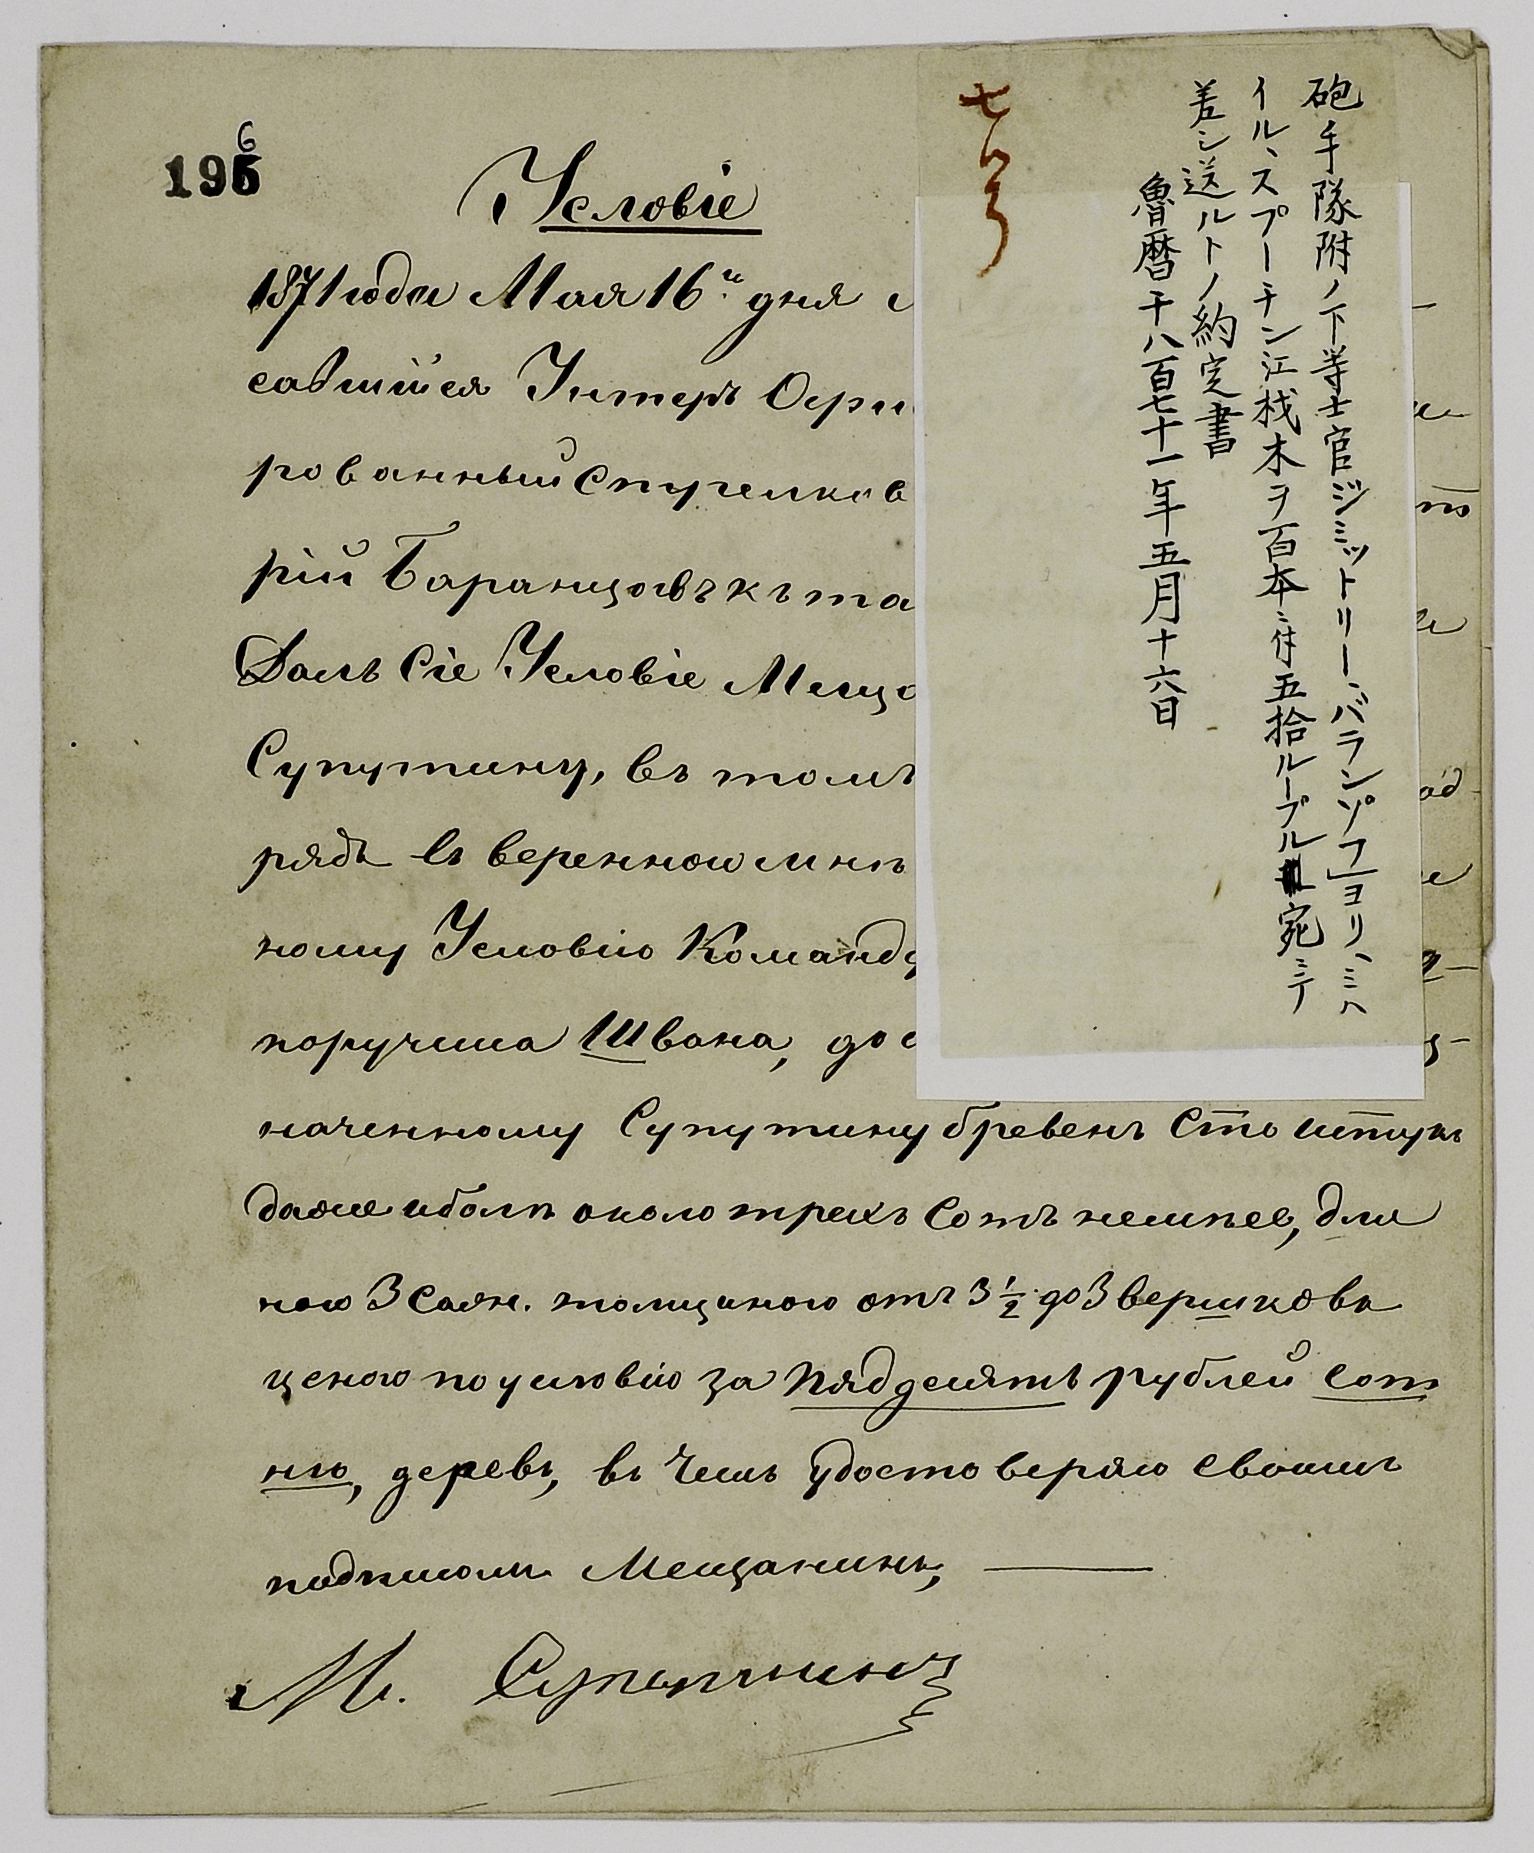 1956
Условіе
1871 года Мая 16го дня
савшійся Унтеръ Офи
рованный Стрелков
рій Баранцовъ къ та
Далъ Сіе Условіе Меща
Супутину, въ томъ
рядъ въ веренной мнѣ
ному Условію Команд
поручика Швана, до
наченному Супутину бревенъ Сто штукъ
даже иболѣ около трехъ Сотъ немѣнее, дли
ною 3 Саж. толщиною отъ 3 1/2 до 3 вершковъ
ценою по условію за пяддесятъ рублей сот
ню, деревъ, въ Чемъ удостоверяю своимъ
подписомъ Мещанинъ,
М. Супутинъ
砲手隊附ノ下等士官ジミットリー、バランゾフ」ヨリ、ミハ
イル、スプーチン江栈木ヲ百本ニ付五拾ルーブル宛ニテ
差シ送ルトノ約定書
魯暦千八百七十一年五月十六日
七八号